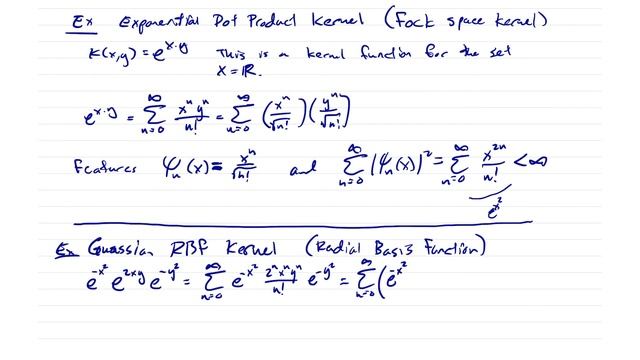 Ex Exponential Dot Product Kernel (Fock space kernel)
K(x,y) = e^{x·y} This is a kernel function for the set
X = ℝ.
e^{x·y} = ∑_{n=0}^{∞} x^n y^n / n! = ∑_{n=0}^{∞} (x^n / √n!) (y^n / √n!)
Features ψ_n(x) = x^n / √n! and ∑_{n=0}^{∞} |ψ_n(x)|^2 = ∑_{n=0}^{∞} x^{2n} / n! < ∞
e^{x^2}
Ex Gaussian RBF Kernel (Radial Basis Function)
e^{-x^2} e^{2xy} e^{-y^2} = ∑_{n=0}^{∞} e^{-x^2} 2^n x^n y^n / n! e^{-y^2} = ∑_{n=0}^{∞} (e^{-x^2}